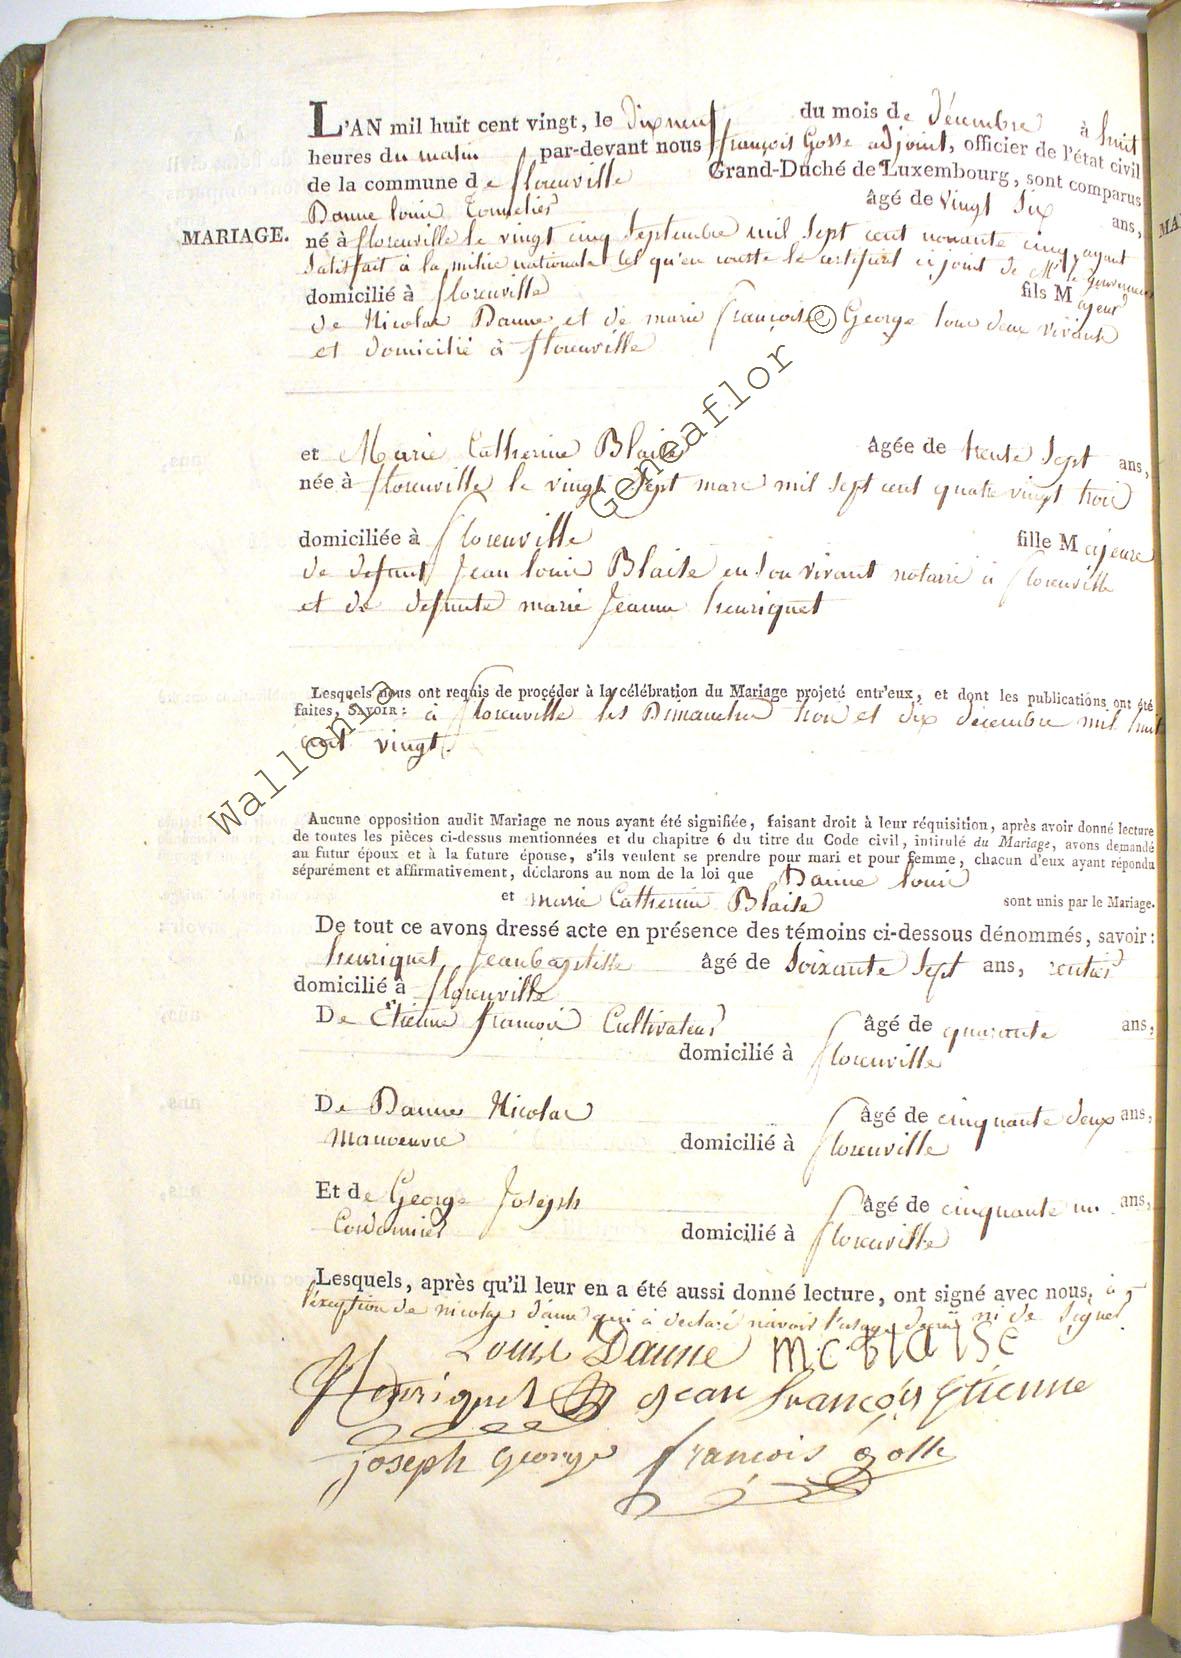 L'AN mil huit cent vingt, le dix neuf du mois de décembre à huit
heures du matin, par-devant nous françois Gosse adjoint, officier de l'état civil
de la commune de florenville Grand-Duché de Luxembourg, sont comparus
Danne louis Tonnelier âgé de vingt six ans,
MARIAGE. né à florenville le vingt cinq septembre mil sept cent nonante cinq, ayant
satisfait à la milice nationale tel qu'en conste le certificat cijoint de Mr le gouverneur
domicilié à florenville fils Majeur
de Nicolas Danne et de marie françoise George tous deux vivants
et domicilié à florenville
et Marie Catherine Blaise âgée de trente sept ans,
née à florenville le vingt sept mars mil sept cent quatre vingt trois
domiciliée à florenville fille Majeure
de defunt Jean louis Blaise en son vivant notaire à florenville
et de defunte marie Jeanne henriquet
Lesquels nous ont requis de procéder à la célébration du Mariage projeté entr'eux, et dont les publications ont été
faites, SAVOIR: à florenville les Dimanches trois et dix décembre mil huit
cent vingt.
Aucune opposition audit Mariage ne nous ayant été signifiée, faisant droit à leur réquisition, après avoir donné lecture
de toutes les pièces ci-dessus mentionnées et du chapitre 6 du titre du Code civil, intitulé du Mariage, avons demandé
au futur époux et à la future épouse, s'ils veulent se prendre pour mari et pour femme, chacun d'eux ayant répondu
séparément et affirmativement, déclarons au nom de la loi que Danne louis
et marie Catherine Blaise sont unis par le Mariage.
De tout ce avons dressé acte en présence des témoins ci-dessous dénommés, savoir:
henriquet Jeanbaptiste âgé de soixante sept ans, rentier
domicilié à florenville
De Etienne françois Cultivateur âgé de quarante ans,
domicilié à florenville
De Danne Nicolas âgé de cinquante deux ans,
manoeuvre domicilié à florenville
Et de George Joseph âgé de cinquante un ans,
Cordonnier domicilié à florenville
Lesquels, après qu'il leur en a été aussi donné lecture, ont signé avec nous, à
l'exeption de nicolas danne qui à declaré n'avoir l'usage d'ecrire ni de signer
Louise Danne mc blaise
Henriquet jean françois Etienne
joseph george françois gosse
Wallonie Geneaflor ©